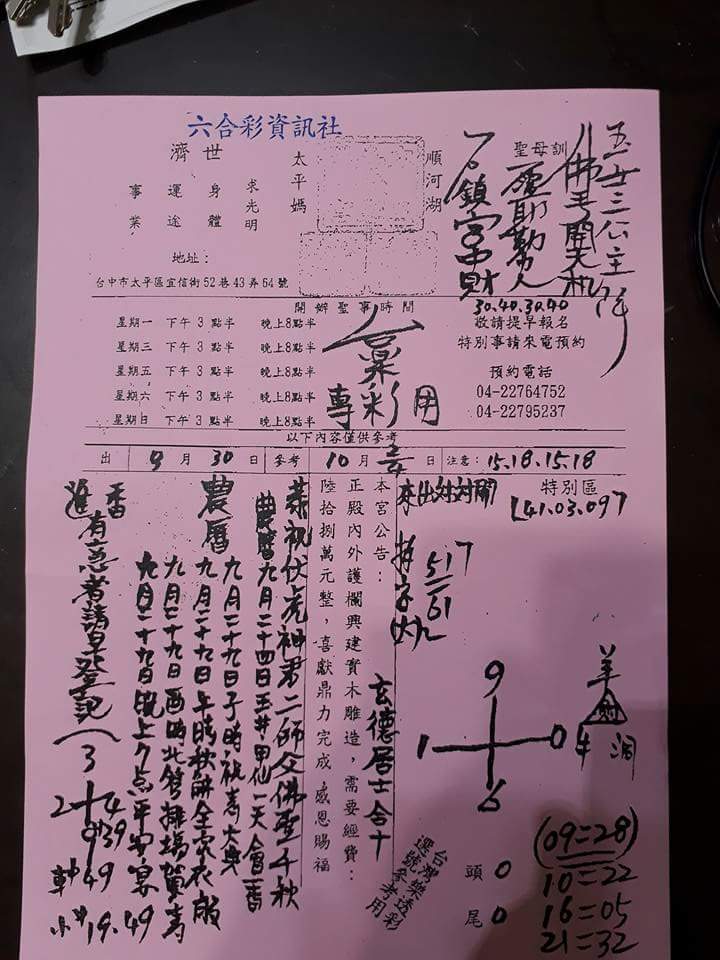 六合彩資訊社
濟世
事業 運途 身體 求光明
太平媽
順河湖
聖母訓
地址：
台中市太平區宜信街52巷43弄64號
30.40.30.40
敬請提早報名
特別事請來電預約
預約電話
04-22764752
04-22795237
開辦聖事時間
星期一 下午3點半 晚上8點半
星期三 下午3點半 晚上8點半
星期五 下午3點半 晚上8點半
星期六 下午3點半 晚上8點半
星期日 下午3點半 晚上8點半
專彩用
以下內容僅供參考
出 9月30日 參考 10月 日 注意：15.18.15.18
特別區
41.03.097
本出対対開
517
61
本宮公告：
正殿內外護欄興建實木雕造，需要經費：
陸拾捌萬元整，喜獻鼎力完成 感恩賜福
玄德居士合十
恭祝伏虎神君二師父佛聖千秋
農曆九月二十四日玉井甲仙一天會香
農曆
九月二十九日子時祝壽大典
九月二十九日午時秋餅全家衣服
九月二十九日酉時北管排場賀壽
九月二十九日晚上7点平安宴
進香
有意者請早登記
3
2 4
9 39
49
19.49
9
1 0
6
羊
頭 0
尾 0
台灣樂透彩
選號參考用
(09=28)
10=22
16=05
21=32